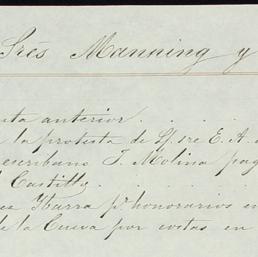 Sres Manning y
ta anterior
la protesta de Lf. re E. A.
escribano J. Molina pag
Castillo
Ybarra pr honorarios en
de la Cueva por costas en